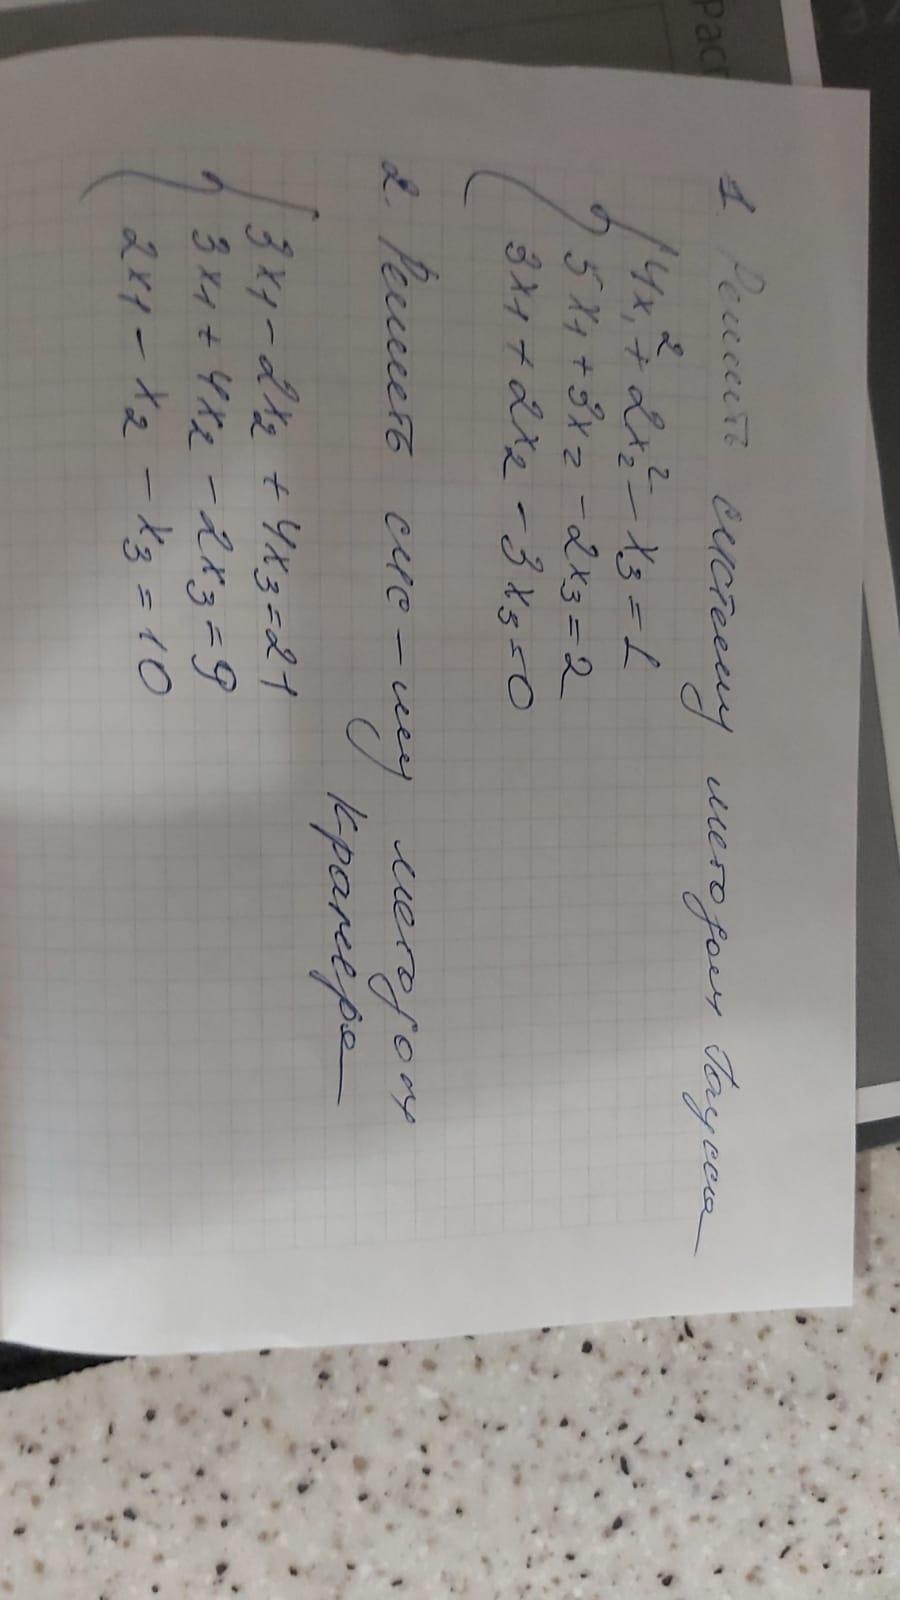 1. Решить систему методом Гаусса
4x₁² + 2x₂² - x₃ = 1
5x₁ + 3x₂ - 2x₃ = 2
3x₁ + 2x₂ - 3x₃ = 0
2. Решить сис-му методом
Крамера
3x₁ - 2x₂ + 4x₃ = 21
3x₁ + 4x₂ - 2x₃ = 9
2x₁ - x₂ - x₃ = 10